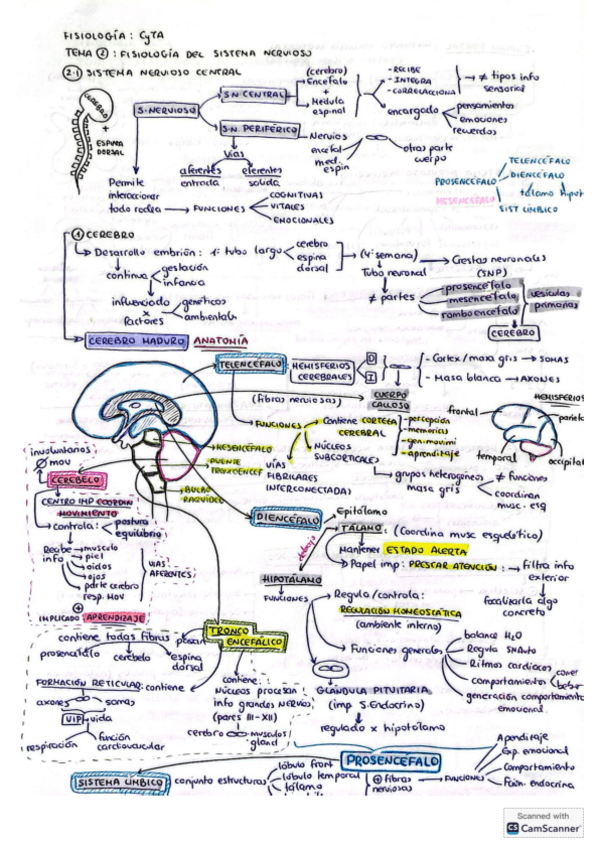 FISIOLOGÍA: CyTA
TEMA ②: FISIOLOGÍA DEL SISTEMA NERVIOSO
2.1 SISTEMA NERVIOSO CENTRAL
CEREBRO
+
ESPINA DORSAL
S.NERVIOSO
S.N. CENTRAL
(cerebro)
Encéfalo
+
Médula espinal
- RECIBE
- INTEGRA
- CORRELACIONA
≠ tipos info sensorial
encargado
pensamientos
emociones
recuerdos
S.N. PERIFÉRICO
Nervios
encéf
med. espin
otras parte cuerpo
Vías
aferentes
entrada
eferentes
salida
Permite interaccionar
todo rodea → FUNCIONES
COGNITIVAS
VITALES
EMOCIONALES
PROSENCÉFALO
TELENCÉFALO
DIENCÉFALO
tálamo Hipot
SIST LÍMBICO
MESENCÉFALO
① CEREBRO
Desarrollo embrión: 1º tubo largo
cerebro
espina dorsal
(4ª semana)
Tubo neuronal
Crestas neuronales
(SNP)
continua
gestación
infancia
influenciado x factores
genéticos
ambientales
≠ partes
prosencéfalo
mesencéfalo
romboencéfalo
vesículas primarias
CEREBRO
CEREBRO MADURO ANATOMÍA
TELENCÉFALO
HEMISFERIOS CEREBRALES
D
I
- Cortex / masa gris → SOMAS
- Masa blanca → AXONES
(fibras nerviosas)
CUERPO CALLOSO
HEMISFERIOS
frontal
pariet
temporal
occipital
FUNCIONES
contiene CORTEZA CEREBRAL
- percepción
- memorias
- gen.movimi
- aprendizaje
NÚCLEOS SUBCORTICALES
grupos heterogéneos masa gris
≠ funciones
coordinan musc. esq
VÍAS FIBRILARES INTERCONECTADAS
MESENCÉFALO
PUENTE
BULBO RAQUÍDEO
involuntarios
mov
CEREBELO
CENTRO IMP COORDIN MOVIMIENTO
controla:
postura
equilibrio
Recibe info
músculo
piel
oídos
ojos
parte cerebro
resp. MOV
VÍAS AFERENTES
⊕
IMPLICADO APRENDIZAJE
DIENCÉFALO
Epitálamo
TÁLAMO: (Coordina musc esquelético)
Mantener ESTADO ALERTA
Papel imp: PRESTAR ATENCIÓN:
filtra info exterior
focalizarla algo concreto
debajo
HIPOTÁLAMO
FUNCIONES
Regula/controla:
REGULACIÓN HOMEOSTÁTICA
(ambiente interno)
Funciones generales
balance H₂O
Regula SNAuto
Ritmos cardíacos
comportamientos
comer
beber
generación comportamiento emocional
GLÁNDULA PITUITARIA
(imp S.Endocrino)
regulado x hipotálamo
TRONCO ENCEFÁLICO
contiene todas fibras
pasan
prosencéfalo
cerebelo
espina dorsal
FORMACIÓN RETICULAR: contiene
axones
somas
VIP vida
respiración
función cardiovascular
contiene:
Núcleos procesan info grandes NERVIOS
(pares III-XII)
cerebro
músculos/ gland
PROSENCÉFALO
SISTEMA LÍMBICO
conjunto estructuras
lóbulo front
lóbulo temporal
tálamo
⊕ fibras nerviosas
FUNCIONES
Aprendizaje
Exp. emocional
Comportamiento
Fxón. endocrina
Scanned with
CS CamScanner